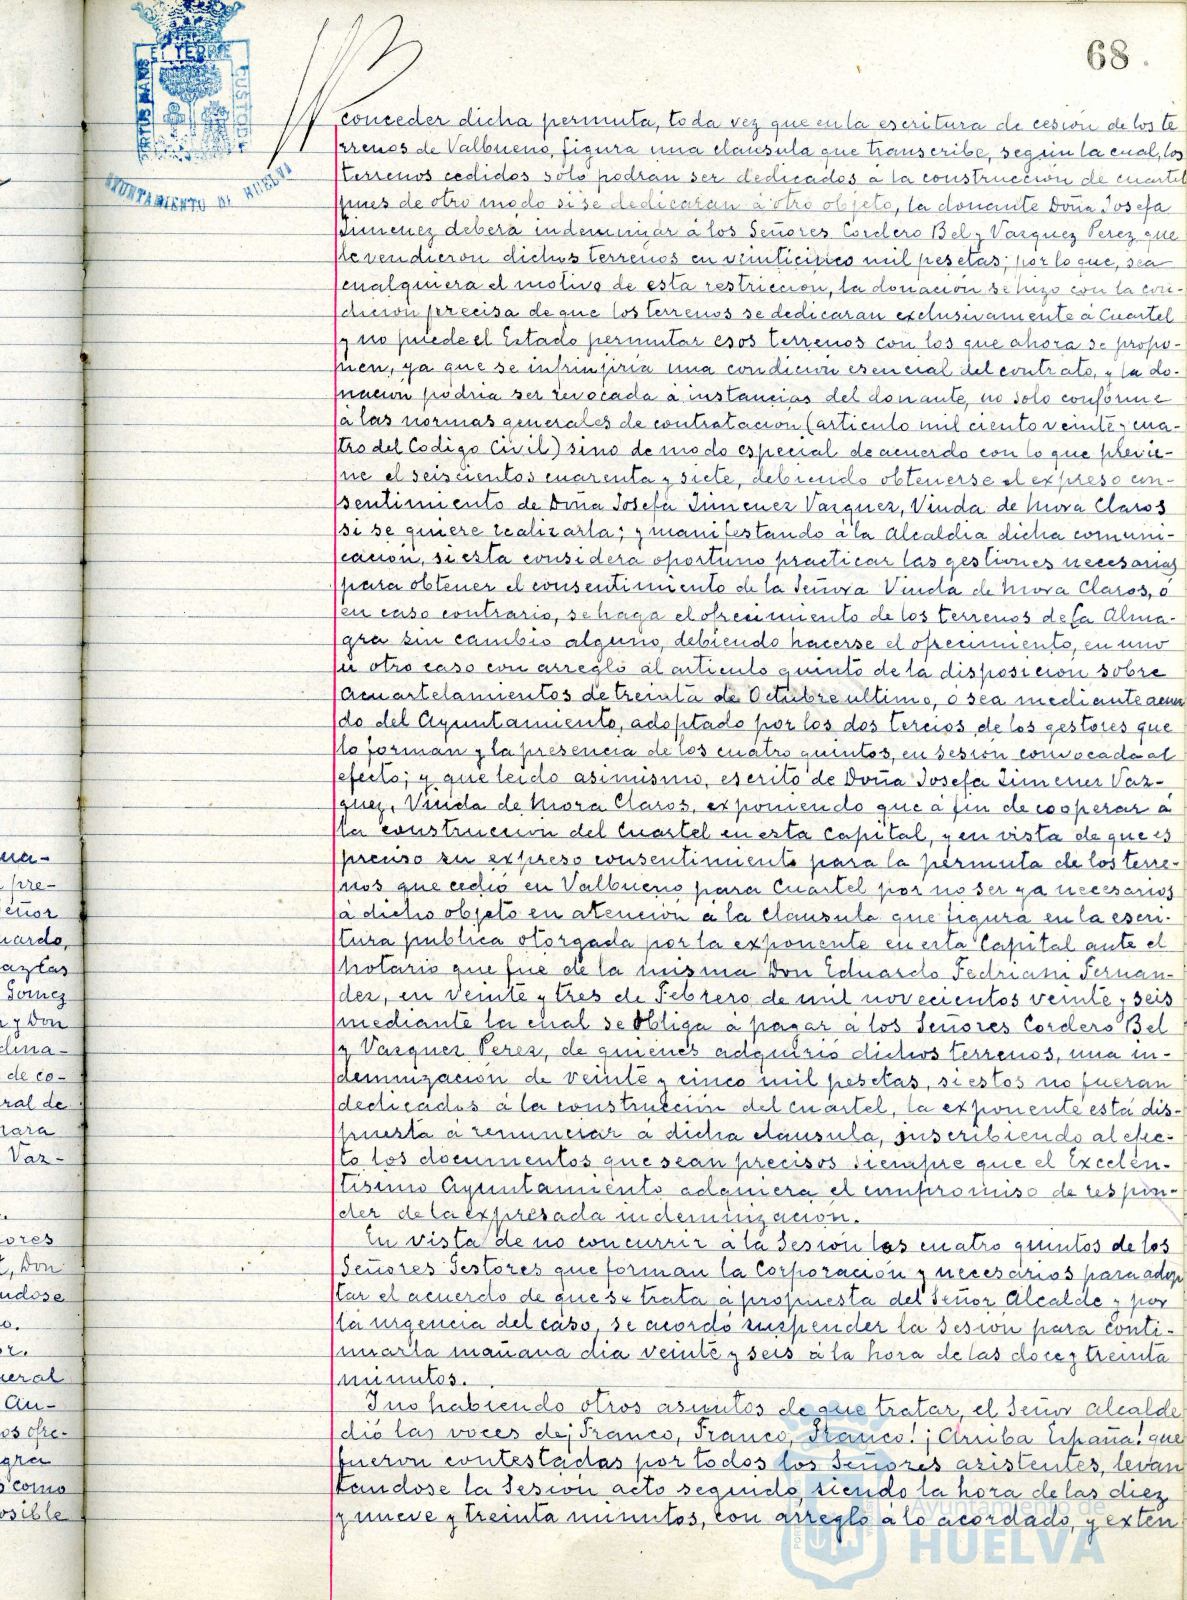 68.
PORTUS MARIS ET TERRE CUSTODIA
AYUNTAMIENTO DE HUELVA
conceder dicha permuta, toda vez que en la escritura de cesión de los te
rrenos de Valbueno, figura una clausula que transcribe, según la cual, los
terrenos cedidos sólo podrán ser dedicados á la construccion de cuartel
pues de otro modo si se dedicaran á otro objeto, la donante Doña Josefa
Jimenez deberá indemnizar á los Señores Cordero Bel y Vazquez Perez que
le vendieron dichos terrenos en veinticinco mil pesetas; por lo que, sea
cualquiera el motivo de esta restriccion, la donación se hizo con la con-
dicion precisa de que los terrenos se dedicaran exclusivamente á Cuartel
y no puede el Estado permutar esos terrenos con los que ahora se propo-
nen, ya que se infrinjiria una condicion esencial del contrato, y la do-
nación podria ser revocada á instancias del donante, no solo conforme
á las normas generales de contratacion (articulo mil ciento veinte y cua-
tro del Codigo Civil) sino de modo especial de acuerdo con lo que previe-
ne el seiscientos cuarenta y siete, debiendo obtenerse el expreso con-
sentimiento de Doña Josefa Jimenez Vazquez, Viuda de Mora Claros
si se quiere realizarla; y manifestando á la Alcaldia dicha comuni-
cación, si esta considera oportuno practicar las gestiones necesarias
para obtener el consentimiento de la Señora Viuda de Mora Claros, ó
en caso contrario, se haga el ofrecimiento de los terrenos de la Alma-
gra sin cambio alguno, debiendo hacerse el ofrecimiento, en uno
ú otro caso con arreglo al articulo quinto de la disposición sobre
acuartelamientos de treinta de Octubre ultimo, ó sea mediante acuer
do del Ayuntamiento, adoptado por los dos tercios de los gestores que
lo forman y la presencia de los cuatro quintos, en sesión convocada al
efecto; y que leido asimismo, escrito de Doña Josefa Jimenez Vaz-
quez, Viuda de Mora Claros, exponiendo que á fin de cooperar á
la construcción del Cuartel en esta Capital, y en vista de que es
preciso su expreso consentimiento para la permuta de los terre-
nos que cedió en Valbueno para Cuartel por no ser ya necesarios
á dicho objeto en atención á la clausula que figura en la escri-
tura publica otorgada por la exponente en esta Capital ante el
Notario que fue de la misma Don Eduardo Fedriani Fernan-
dez, en veinte y tres de Febrero de mil novecientos veinte y seis
mediante la cual se obliga á pagar á los Señores Cordero Bel
y Vazquez Perez, de quienes adquirió dichos terrenos, una in-
demnización de veinte y cinco mil pesetas, si estos no fueran
dedicados á la construcción del cuartel, la exponente está dis-
puesta á renunciar á dicha clausula, suscribiendo al efec-
to los documentos que sean precisos siempre que el Excelen-
tisimo Ayuntamiento adquiera el compromiso de respon-
der de la expresada indemnización.
En vista de no concurrir á la Sesión los cuatro quintos de los
Señores Gestores que forman la Corporación y necesarios para adop
tar el acuerdo de que se trata á propuesta del Señor Alcalde y por
la urgencia del caso, se acordó suspender la Sesión para conti-
nuarla mañana dia veinte y seis á la hora de las doce y treinta
minutos.
Y no habiendo otros asuntos de que tratar, el Señor Alcalde
dió las voces de ¡Franco, Franco, Franco! ¡Arriba España! que
fueron contestadas por todos los Señores asistentes, levan
tandose la Sesión acto seguido, siendo la hora de las diez
y nueve y treinta minutos, con arreglo á lo acordado, y exten
Ayuntamiento de
HUELVA
ua-
pre-
eñor
uardo,
aztas
Gomez
n y Don
dina-
de co-
ral de
nara
Vaz-
ores
Don
ndose
o.
or.
neral
Au-
os ofre-
gra
s como
osible